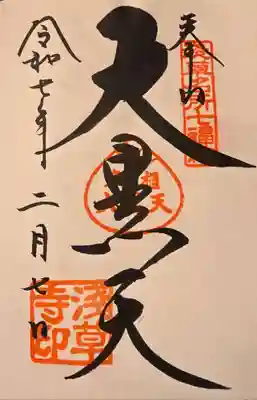 奉拝
浅草名所七福神
大黒天
令和七年二月七日
浅草寺印